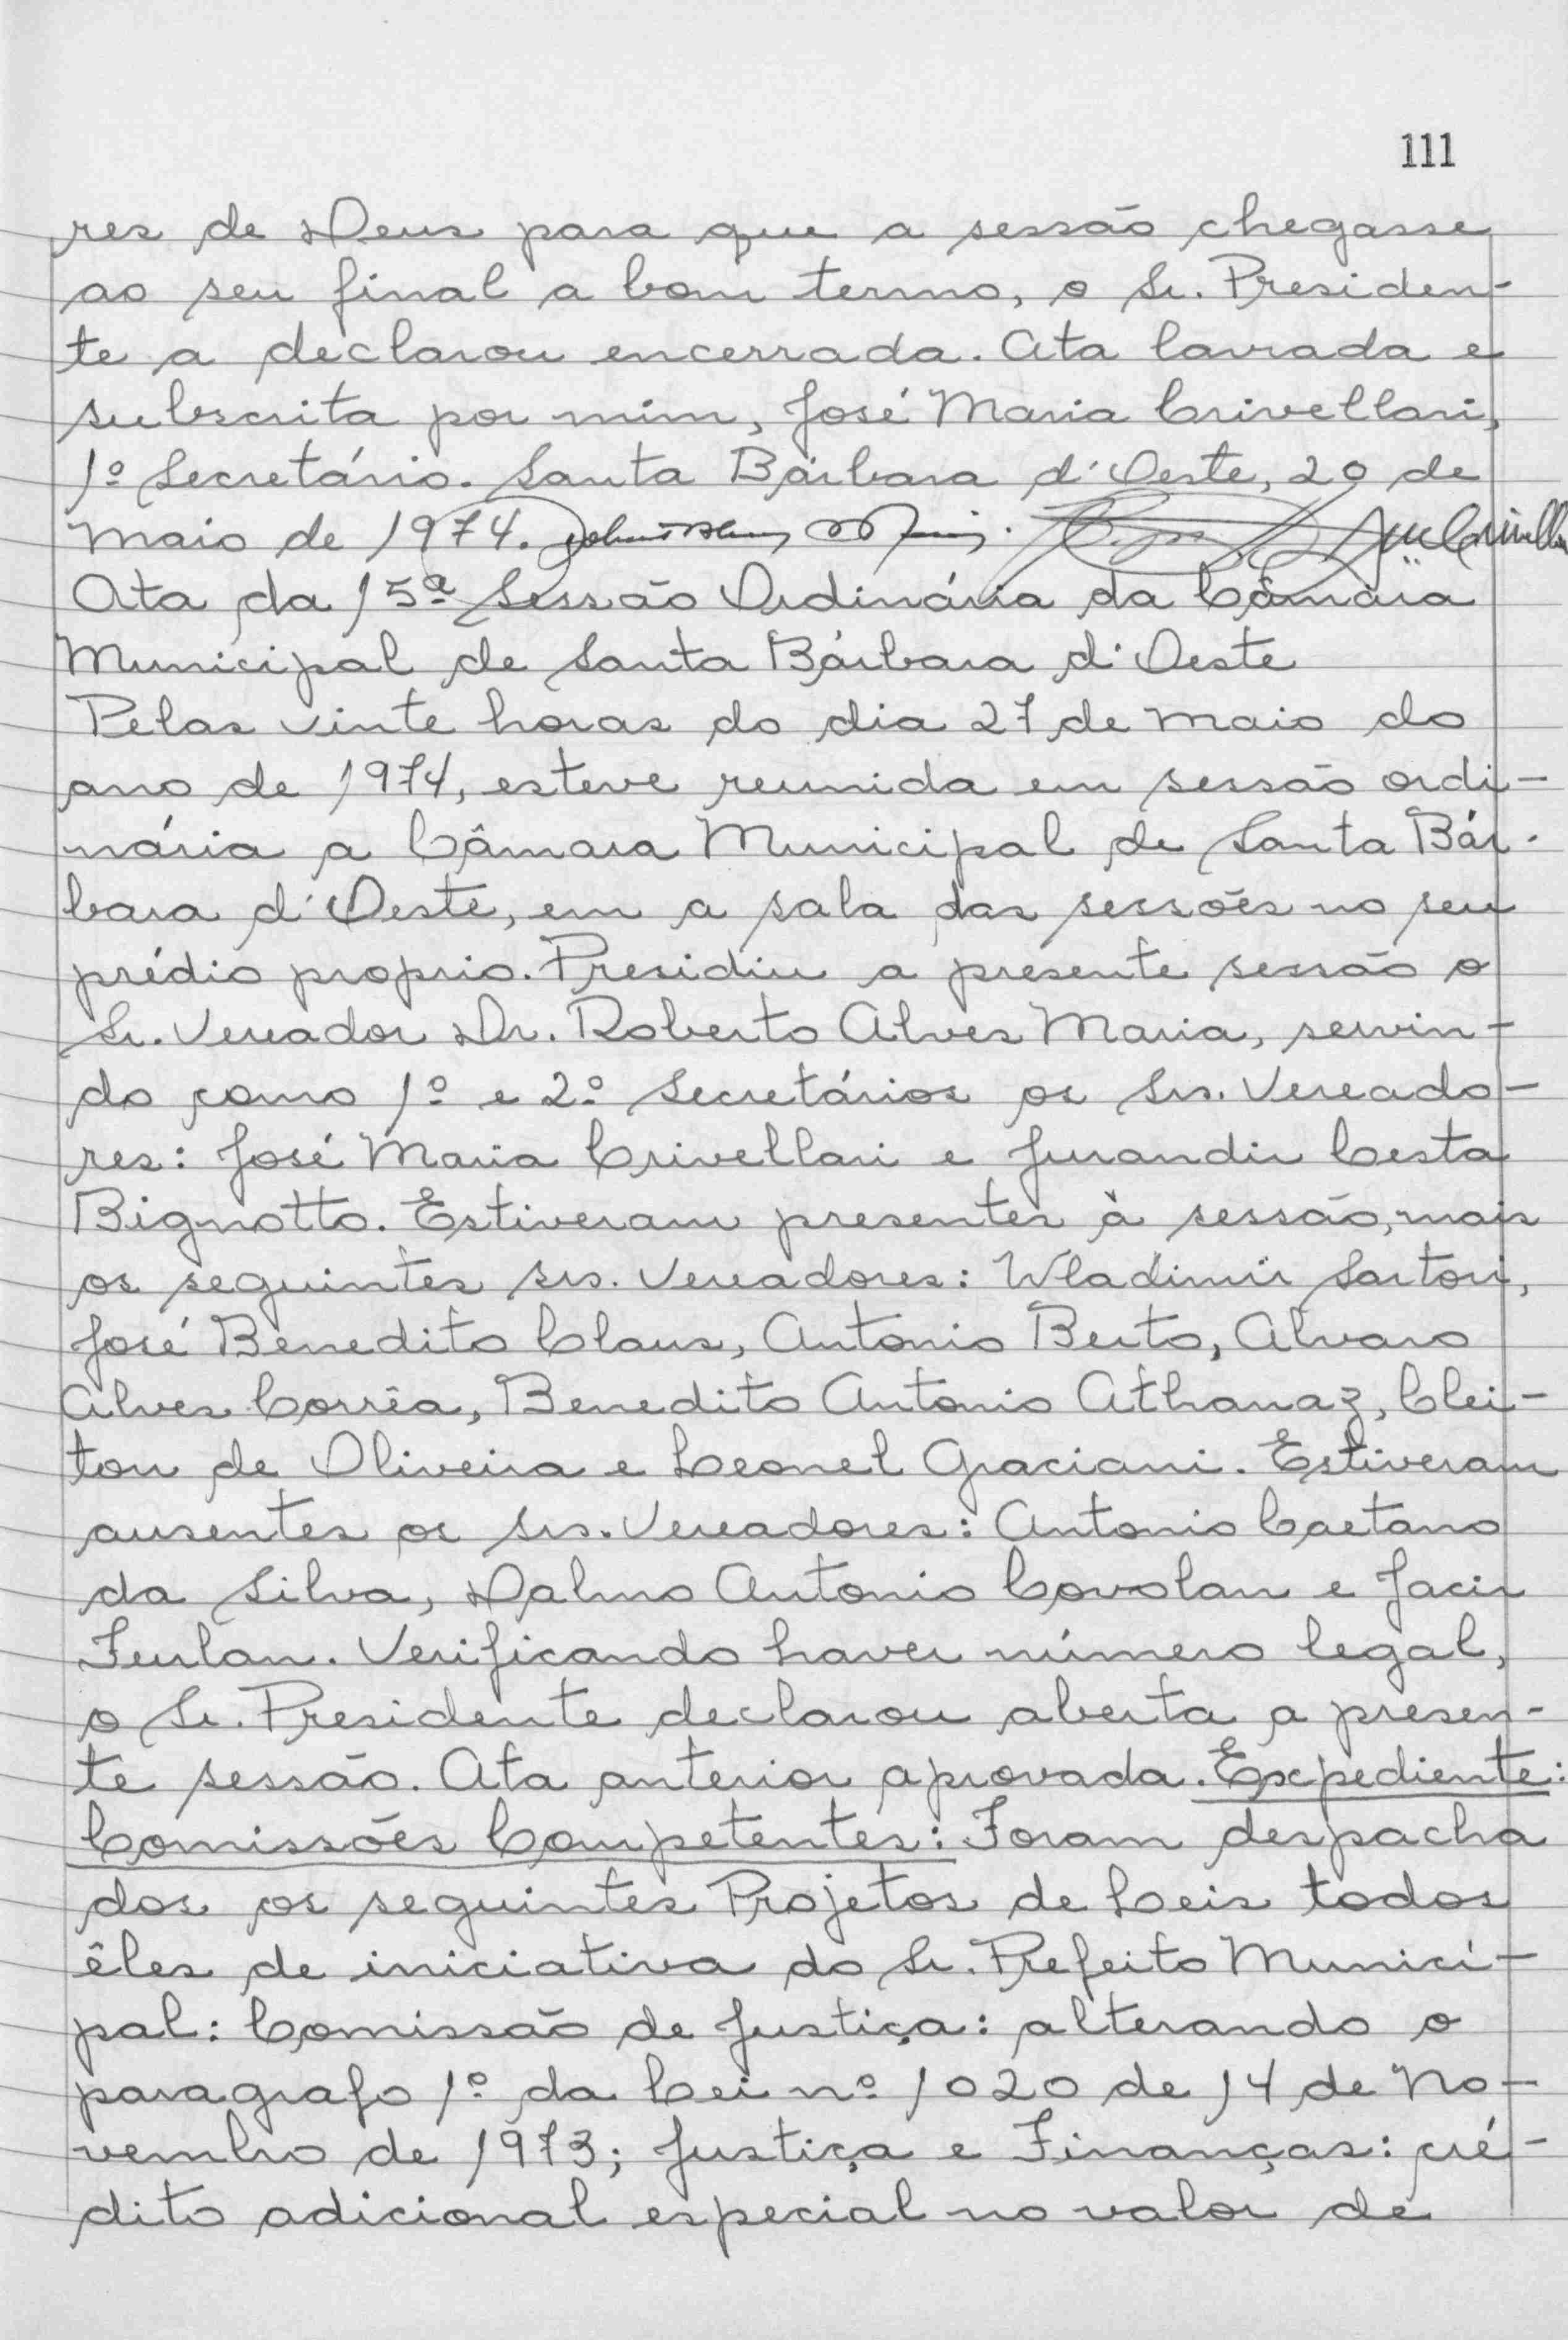 111
res de Deus para que a sessão chegasse
ao seu final a bom termo, o Sr. Presiden-
te a declarou encerrada. Ata lavrada e
subscrita por mim, José Maria Crivellari,
1º Secretário. Santa Bárbara d'Oeste, 20 de
maio de 1974.
Ata da 15ª Sessão Ordinária da Câmara
Municipal de Santa Bárbara d'Oeste
Pelas vinte horas do dia 27 de maio do
ano de 1974, esteve reunida em sessão ordi-
nária a Câmara Municipal de Santa Bár-
bara d'Oeste, em a sala das sessões no seu
prédio proprio. Presidiu a presente sessão o
Sr. Vereador Dr. Roberto Alves Maria, servin-
do como 1º e 2º Secretários os Srs. Vereado-
res: José Maria Crivellari e Jurandir Cesta
Bignotto. Estiveram presentes à sessão, mais
os seguintes srs. Vereadores: Wladimir Sartori,
José Benedito Claus, Antonio Berto, Alvaro
Alves Corrêa, Benedito Antonio Athanaz, Clei-
ton de Oliveira e Leonel Graciani. Estiveram
ausentes os srs. Vereadores: Antonio Caetano
da Silva, Dalmo Antonio Covolan e Jacir
Furlan. Verificando haver número legal,
o Sr. Presidente declarou aberta a presen-
te sessão. Ata anterior aprovada. Expediente:
Comissões Competentes: Foram despacha
dos os seguintes Projetos de Leis todos
êles de iniciativa do Sr. Prefeito Munici-
pal: Comissão de Justiça: alterando o
paragrafo 1º da Lei nº 1020 de 14 de No-
vembro de 1973; Justiça e Finanças: cré-
dito adicional especial no valor de